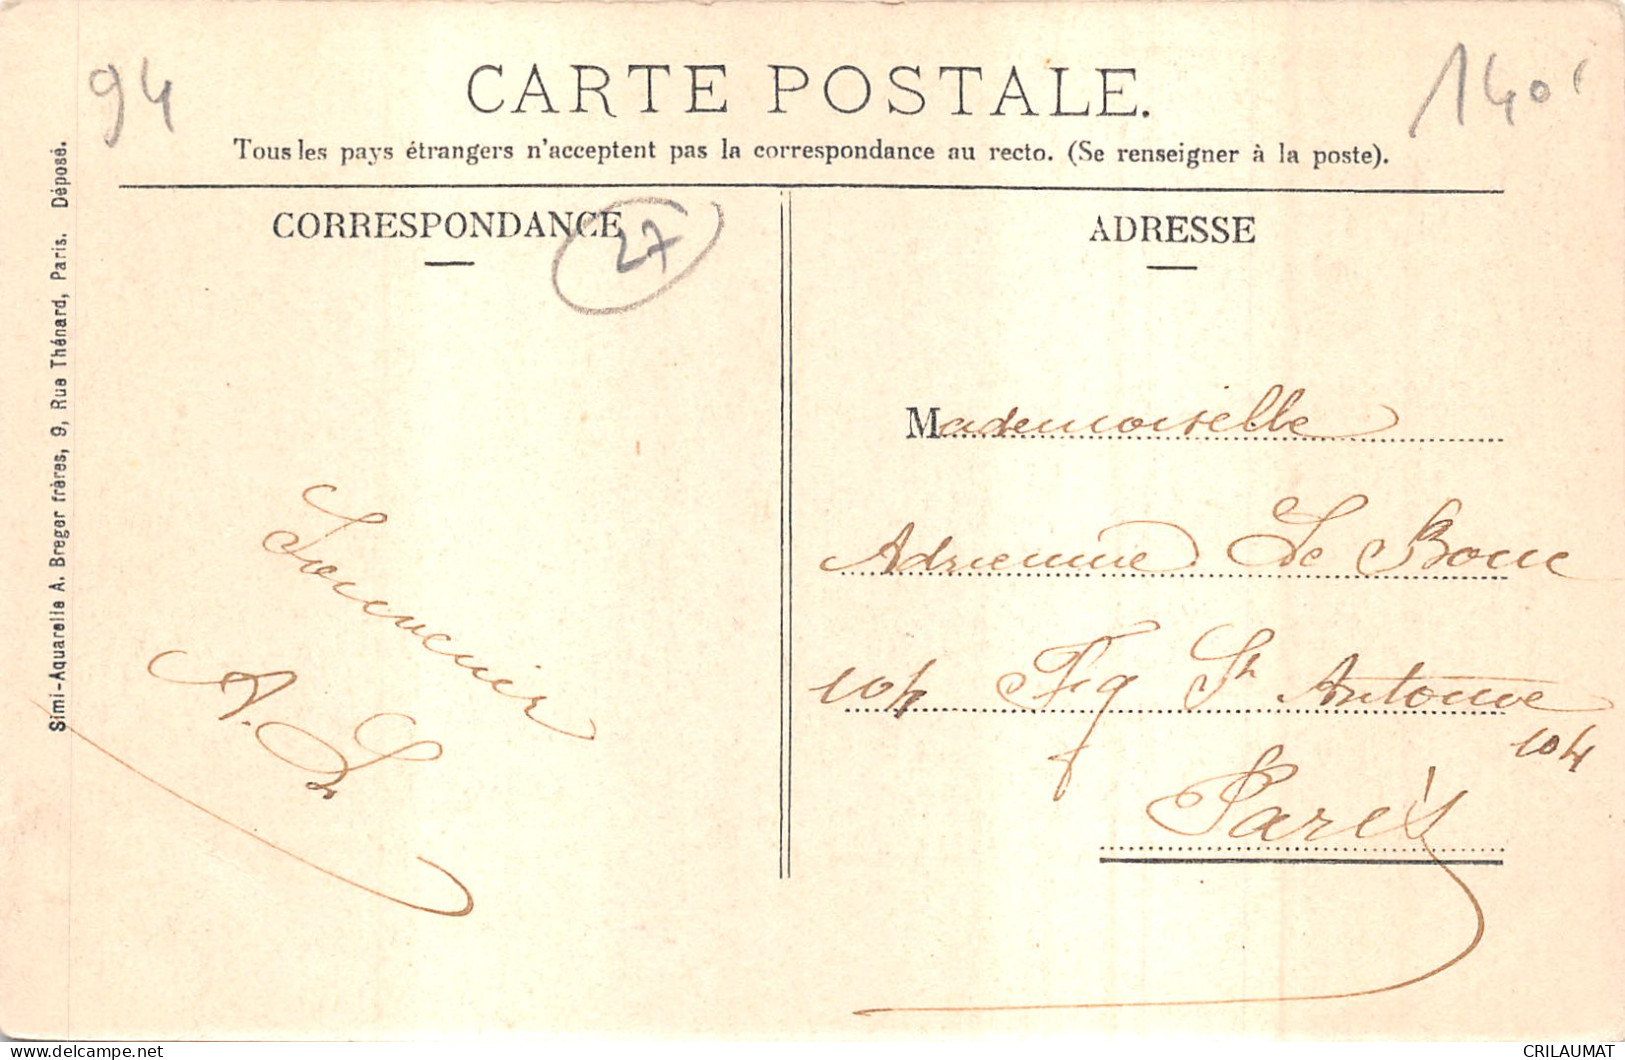 94
140
CARTE POSTALE.
Tous les pays étrangers n'acceptent pas la correspondance au recto. (Se renseigner à la poste).
CORRESPONDANCE
27
ADRESSE
Simi-Aquarelle A. Breger frères, 9, Rue Thénard, Paris. Déposé.
Souvenir
A. L.
Mademoiselle
Adrienne Le Bouc
104 Fg St Antoine
104
Paris
delcampe.net
CRILAUMAT